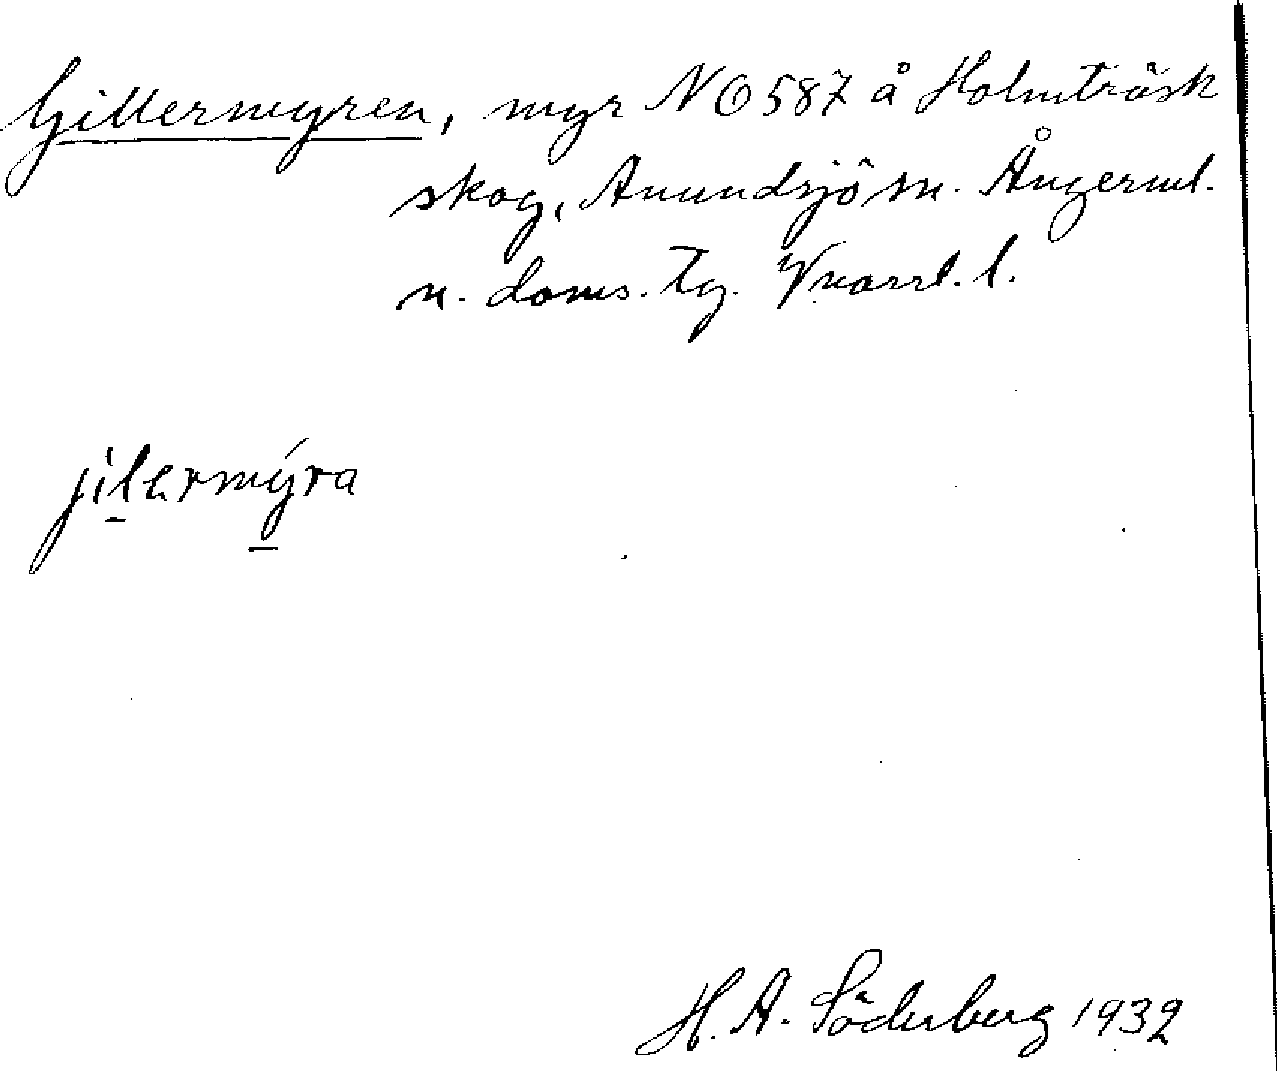 Gillermyren, myr NO 587 å Holmträsk
skog, Anundsjö sn. Ångerml.
n. doms. tg. Vnorrl. l.
jilermýra
H. A. Söderberg 1932